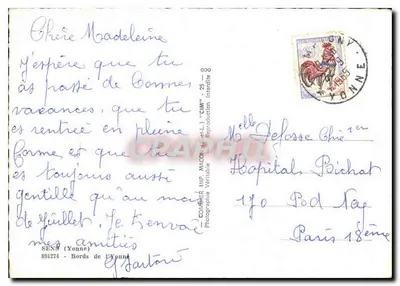 Chère Madeleine
J'espère que tu
as passé de bonnes
vacances, que tu
es rentrée en pleine
forme et que tu
es toujours aussi
gentille qu'au mois
de Juillet. Je t'envoie
mes amitiés
SENS (Yonne)
894274 - Bords de l'Yonne
COMBIER IMP. MACON
"CIM"
Photographie Véritable
Reproduction Interdite
YONNE
Melle Defosse
Hôpital Bichat
170
Paris 18ème